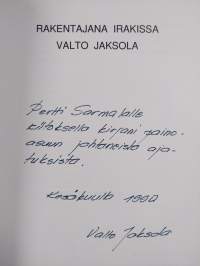 RAKENTAJANA IRAKISSA
VALTO JAKSOLA
Pertti Sarmalalle
kiitoksella kirjani paino-
asuun johtaneista aja-
tuksista.
Kesäkuulla 1992
Valto Jaksola